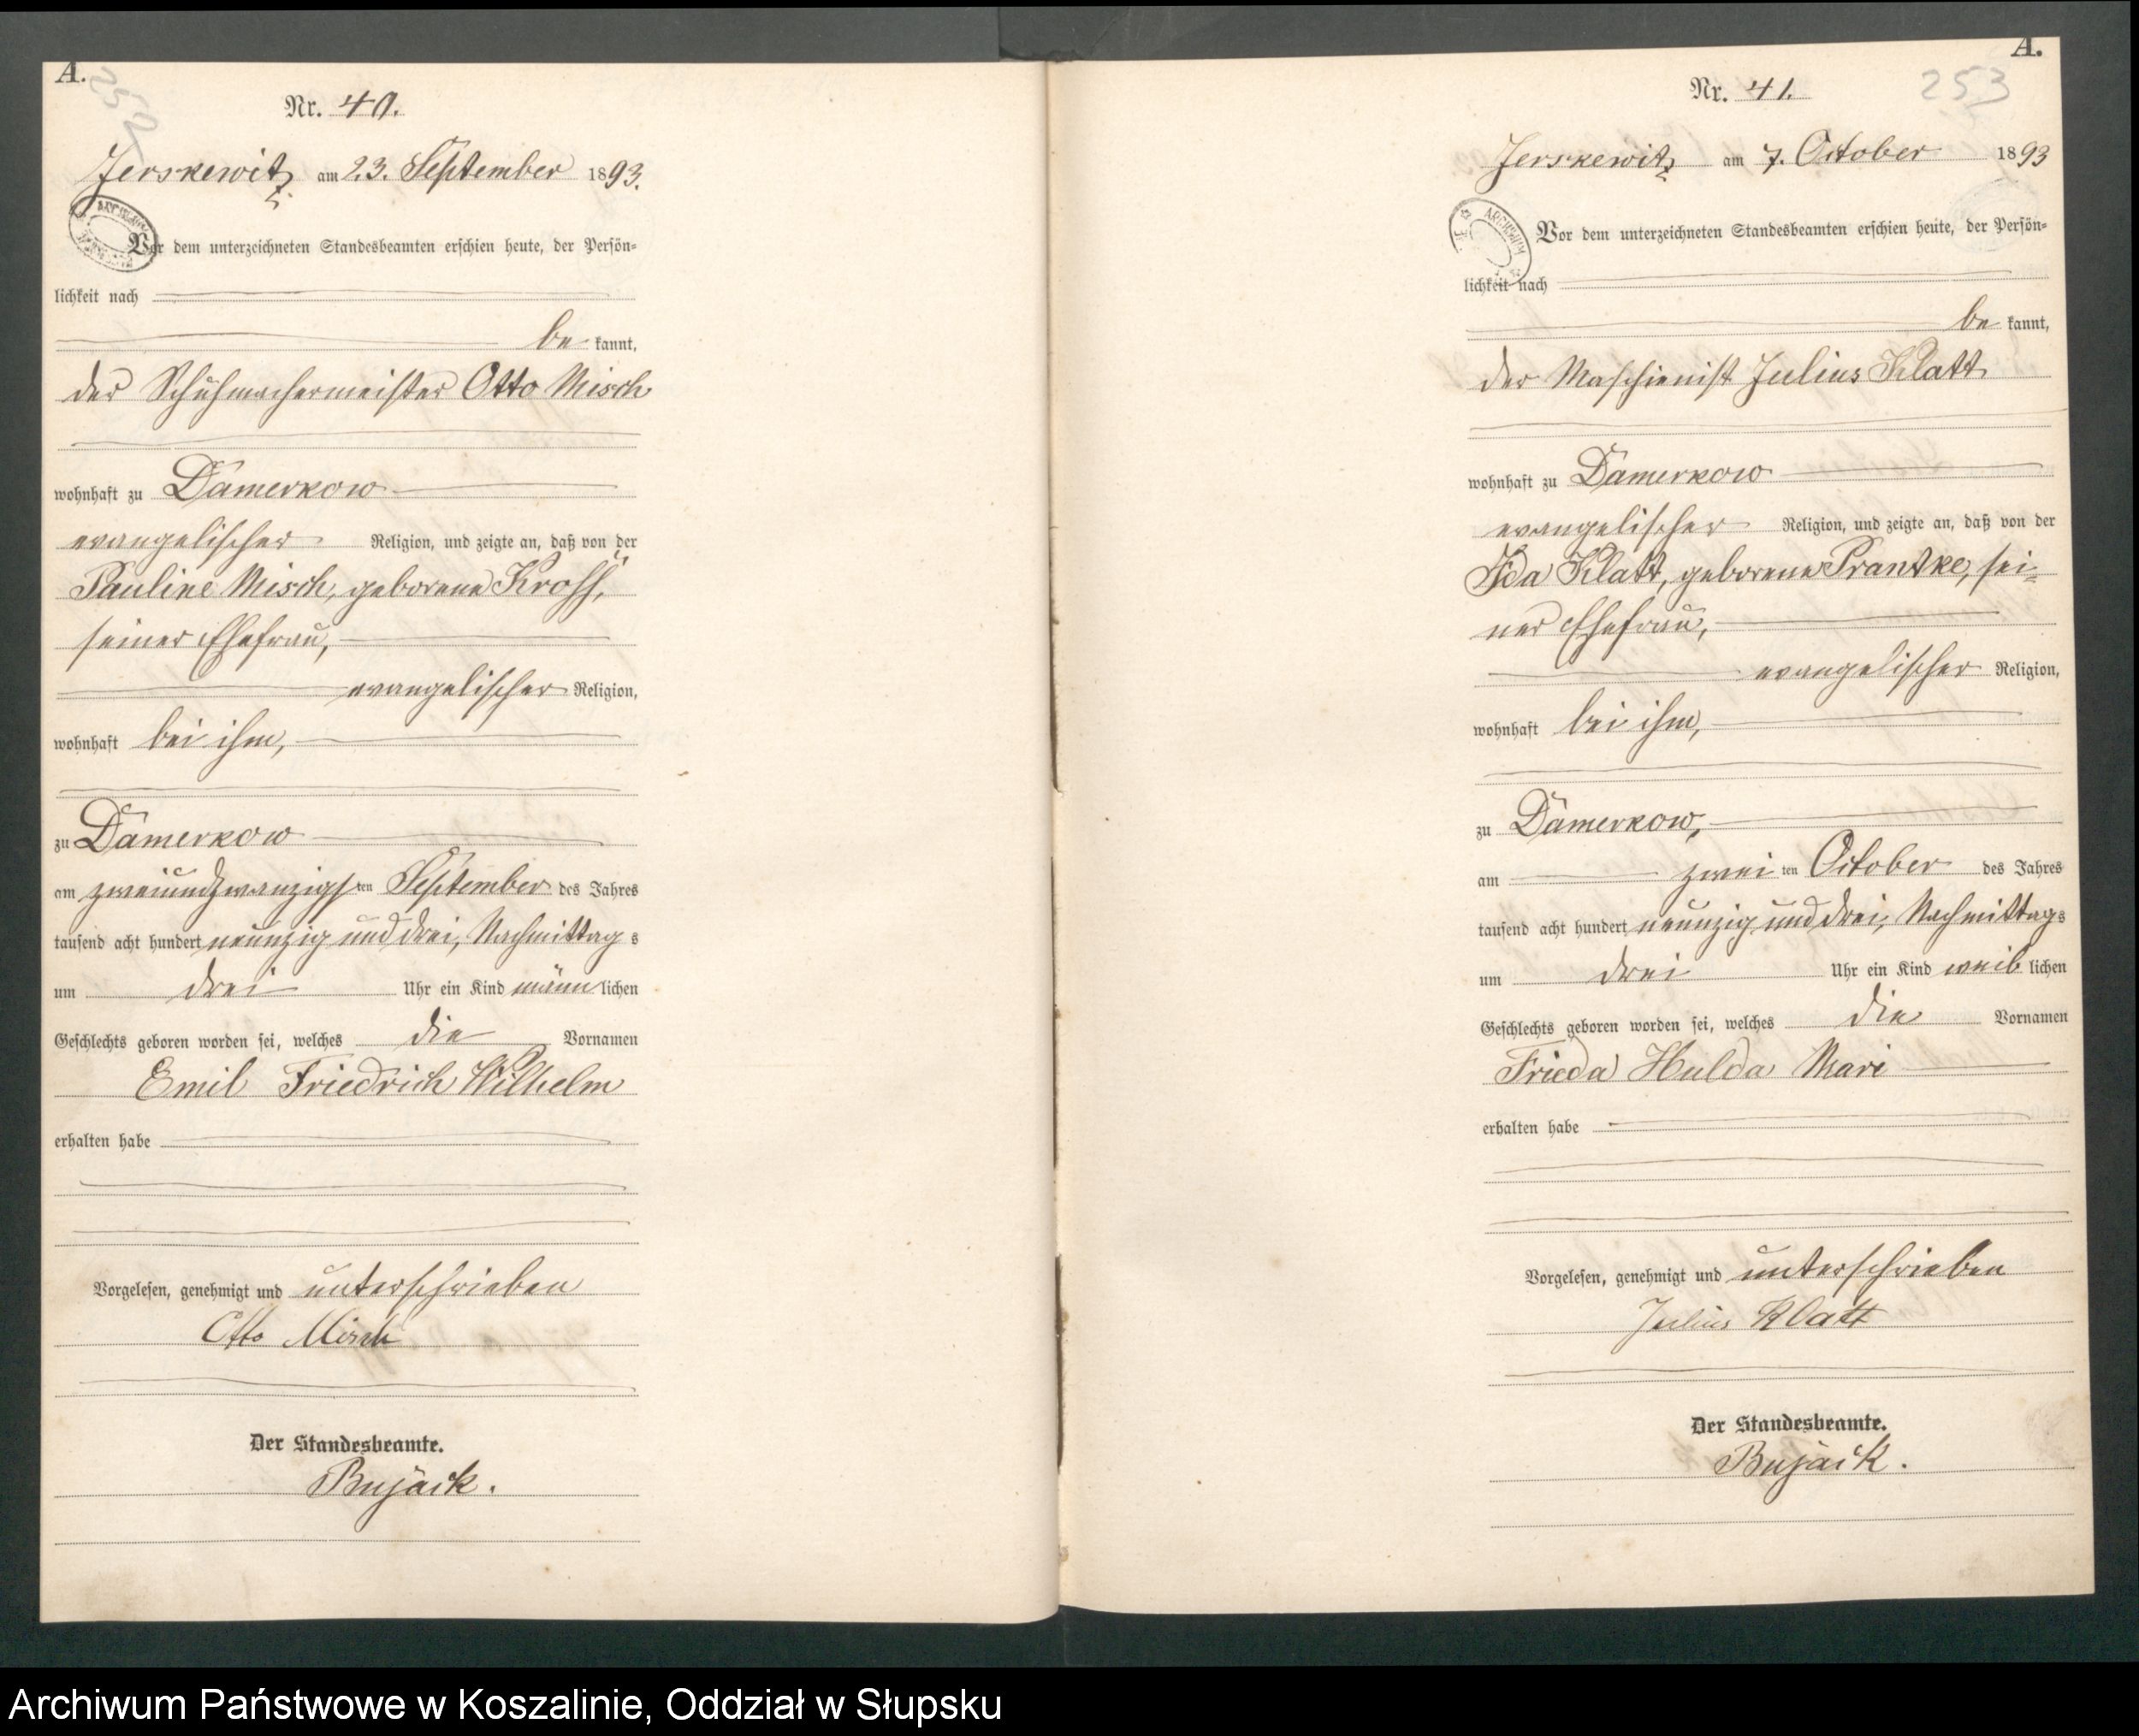 A.
Nr. 40.
Jerskewitz am 23. September 1893.
Vor dem unterzeichneten Standesbeamten erschien heute, der Persön-
lichkeit nach
be kannt,
der Schuhmachermeister Otto Misch
wohnhaft zu Damerkow
evangelischer Religion, und zeigte an, daß von der
Pauline Misch, geborene Kroß,
seiner Ehefrau,
evangelischer Religion,
wohnhaft bei ihm,
zu Damerkow
am zweiundzwanzigsten September des Jahres
tausend acht hundert neunzig und drei, Nachmittags
um drei Uhr ein Kind männlichen
Geschlechts geboren worden sei, welches die Vornamen
Emil Friedrich Wilhelm
erhalten habe
Vorgelesen, genehmigt und unterschrieben
Otto Misch
Der Standesbeamte.
Bujack.
A.
253
Nr. 41.
Jerskewitz am 7. October 1893
ARCHIWUM
Vor dem unterzeichneten Standesbeamten erschien heute, der Persön-
lichkeit nach
be kannt,
der Maschienist Julius Klatt
wohnhaft zu Damerkow
evangelischer Religion, und zeigte an, daß von der
Ida Klatt, geborene Prantke, sei-
ner Ehefrau,
evangelischer Religion,
wohnhaft bei ihm,
zu Damerkow,
am zweiten October des Jahres
tausend acht hundert neunzig und drei, Nachmittags
um drei Uhr ein Kind weiblichen
Geschlechts geboren worden sei, welches die Vornamen
Frieda Hulda Mari
erhalten habe
Vorgelesen, genehmigt und unterschrieben
Julius Klatt
Der Standesbeamte.
Bujack.
Archiwum Państwowe w Koszalinie, Oddział w Słupsku